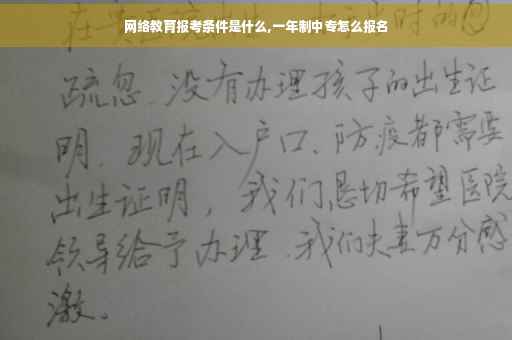 网络教育报考条件是什么,一年制中专怎么报名
疏忽、没有办理孩子的出生证
明、现在入户口、防疫都需要
出生证明，我们恳切希望医院
领导给予办理、我们夫妻万分感
激。